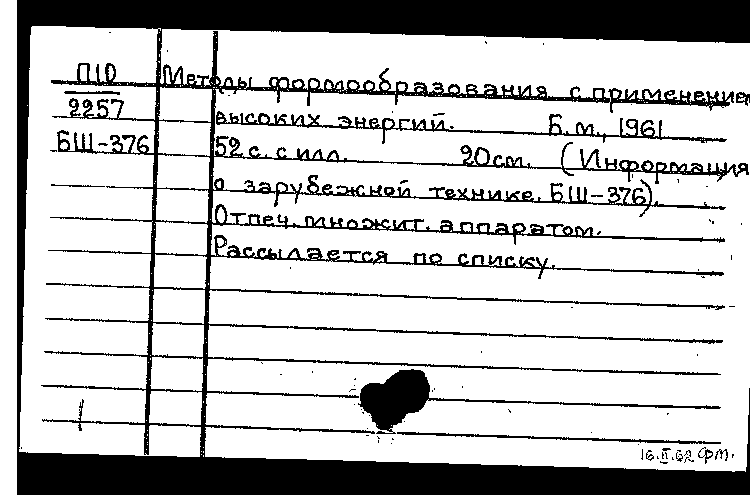 П10
2257
БШ-376
Методы формообразования с применением
высоких энергий. Б.м., 1961
52 с. с илл. 20см. (Информация
о зарубежной технике. БШ-376).
Отпеч. множит. аппаратом.
Рассылается по списку.
16.II.62 ФМ.